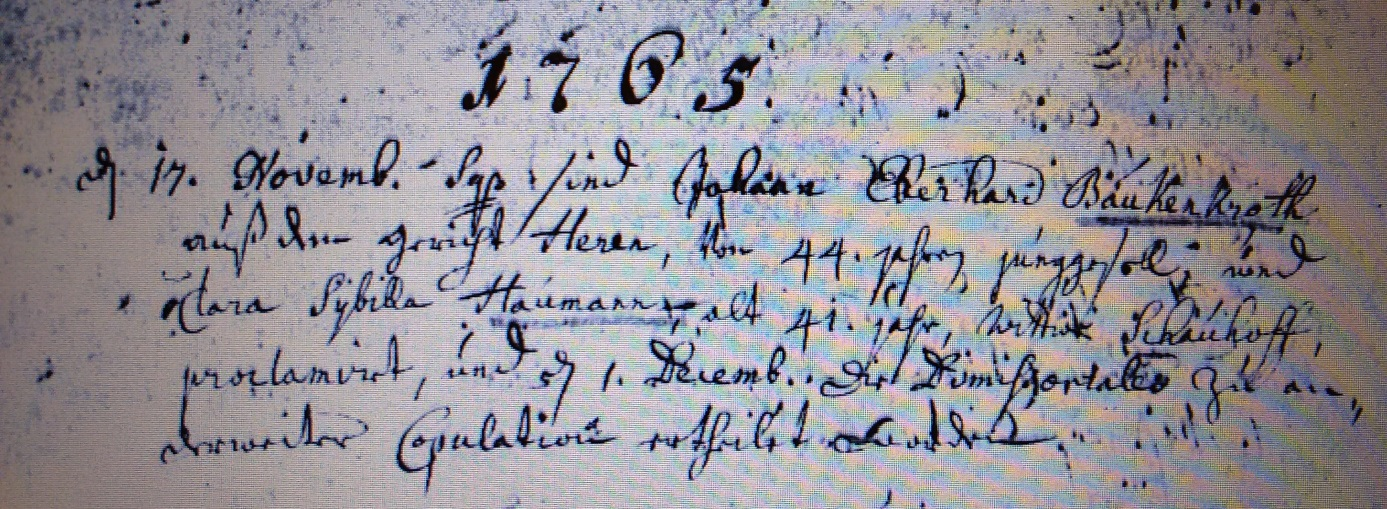 1765.
17. Novemb. sind Johann Eberhard Bäukenkroth
auß dem gericht Heren, von 44. jahren junggesell, und
Clara Sÿbilla Haumanns, alt 41. jahr, Wittib Schauhoff,
proclamirt, und 1. Decemb. die Dimissoriales zu an„
derweiter Copulation ertheilet worden.